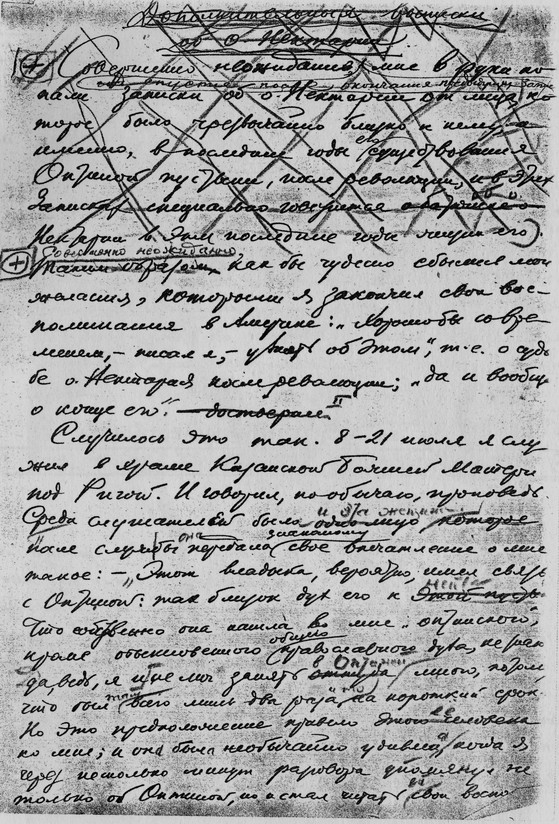 Дополнительныя выписки
об о. Нектарии
Совершенно неожиданно мне в руки по-
пали записки об о. Нектарии от лица, ко-
торое было чрезвычайно близко к нему, а
именно, в последние годы существования
Оптиной пустыни, после революции, и в этих
записках специально говорится
Нектарии в эти последние годы жизни его).
Совершенно неожиданно
Таким образом, как бы чудесно сбылися мои
желания, которыми я закончил свои вос-
поминания в Америке: „Хорошо бы со вре-
менем, – писал я, – узнать об этом", т.е. о судь-
бе о. Нектария после революции; „да и вообще
о конце его".
II
Случилось это так. 8–21 июля я слу-
жил в храме Казанской Божией Матери
под Ригой. И говорил, по обычаю, проповедь.
и эта женщина
Среди слушателей было одно лицо, которое
она знакомому
после службы передала свое впечатление о мне
такое: – „Этот владыка, вероятно, имел связь
с Оптиной: так близок дух его к этой
Что собственно она нашла во мне „оптинского",
общно
кроме обыкновенного православного духа, не
в Оптине
да, ведь, я и не мог занять оттуда много, потому
там
что был всего лишь два раза, на короткий срок.
Но это предположение привело этого человека
ко мне; и она была необычайно удивлена, когда я
через несколько минут разговора упомянул не
только об Оптиной, но и стал читать свои воспо-